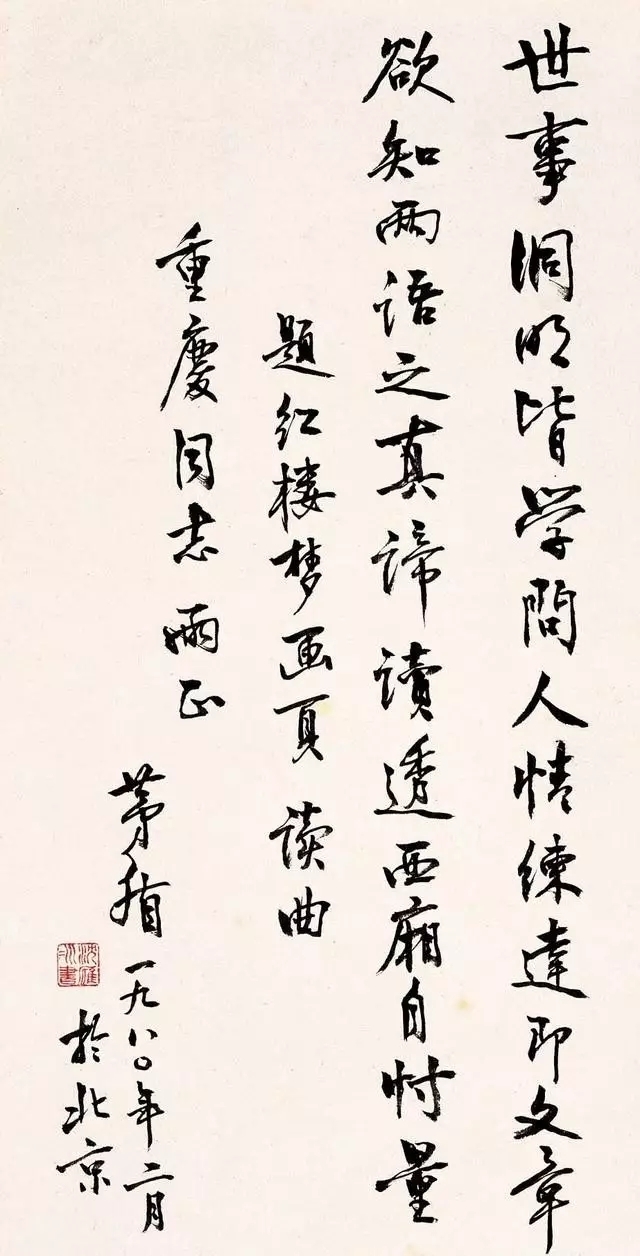 世事洞明皆学問人情練達即文章
欲知两语之真谛讀透西廂自忖量
题红楼梦画頁 读曲
重慶同志 兩正
茅盾 一九八〇年二月
於北京